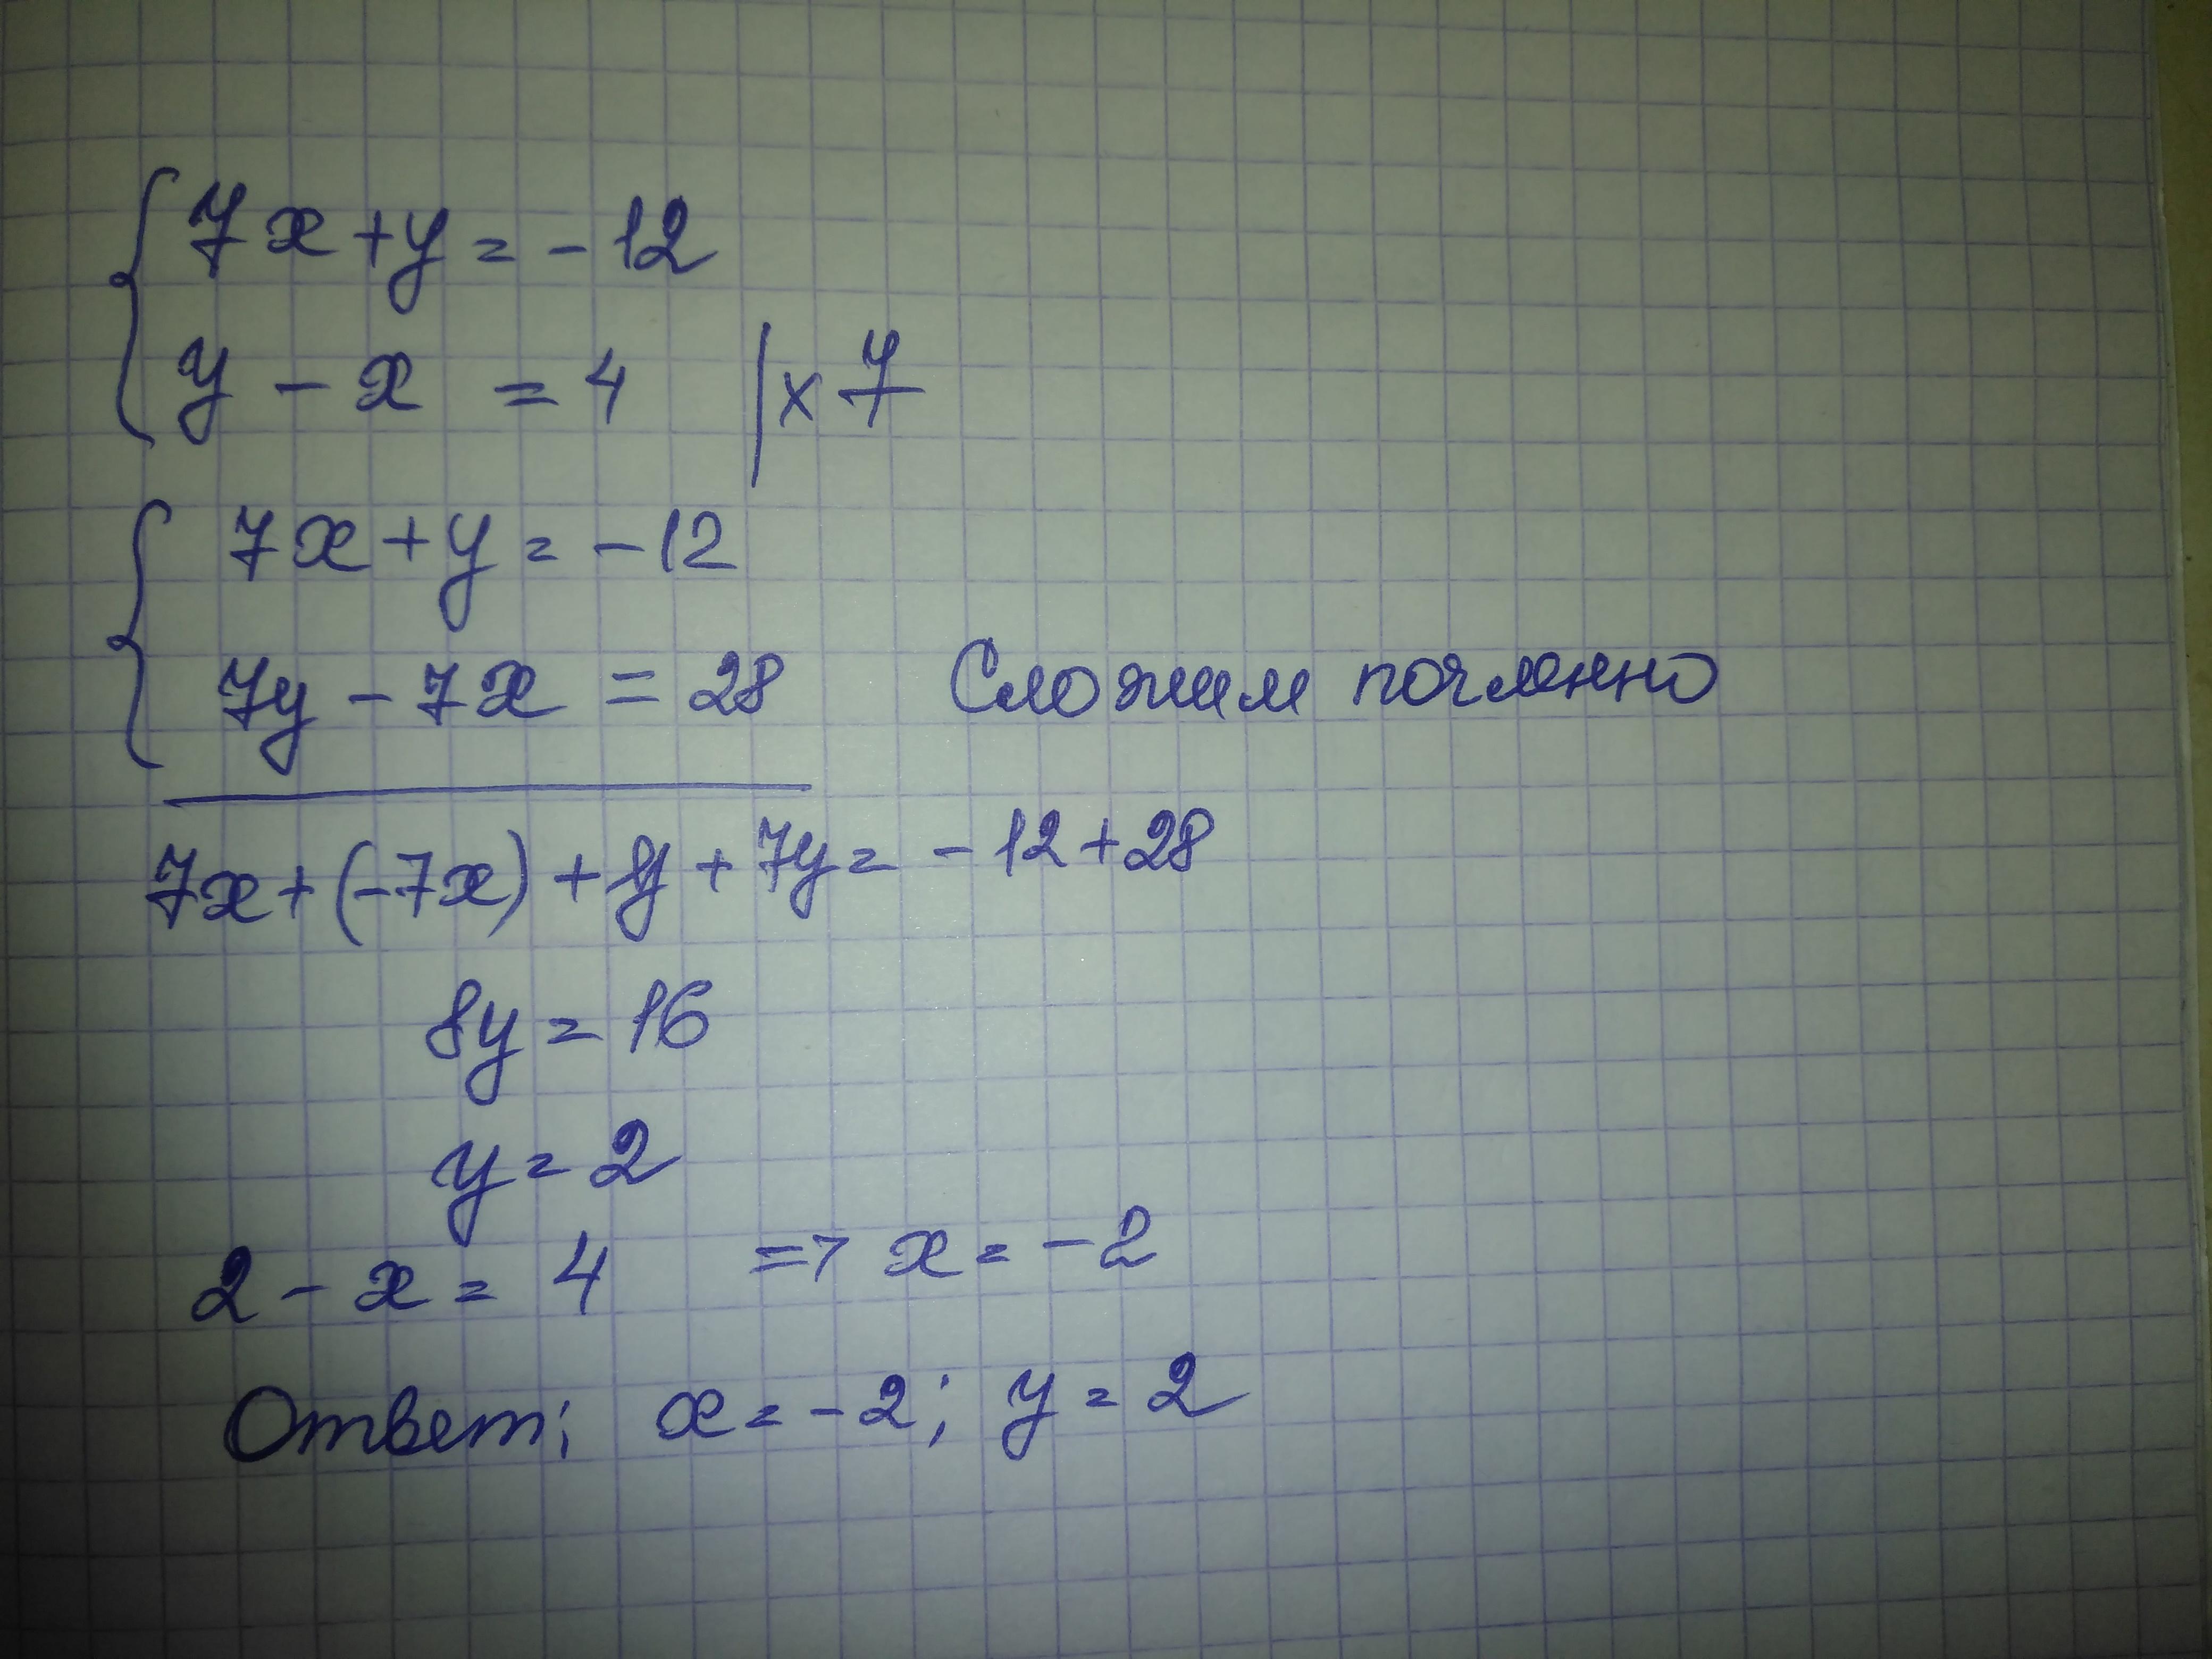 7x + y = -12
y - x = 4 | x 7
7x + y = -12
7y - 7x = 28 Сложим почленно
7x + (-7x) + y + 7y = -12 + 28
8y = 16
y = 2
2 - x = 4 => x = -2
Ответ: x = -2; y = 2